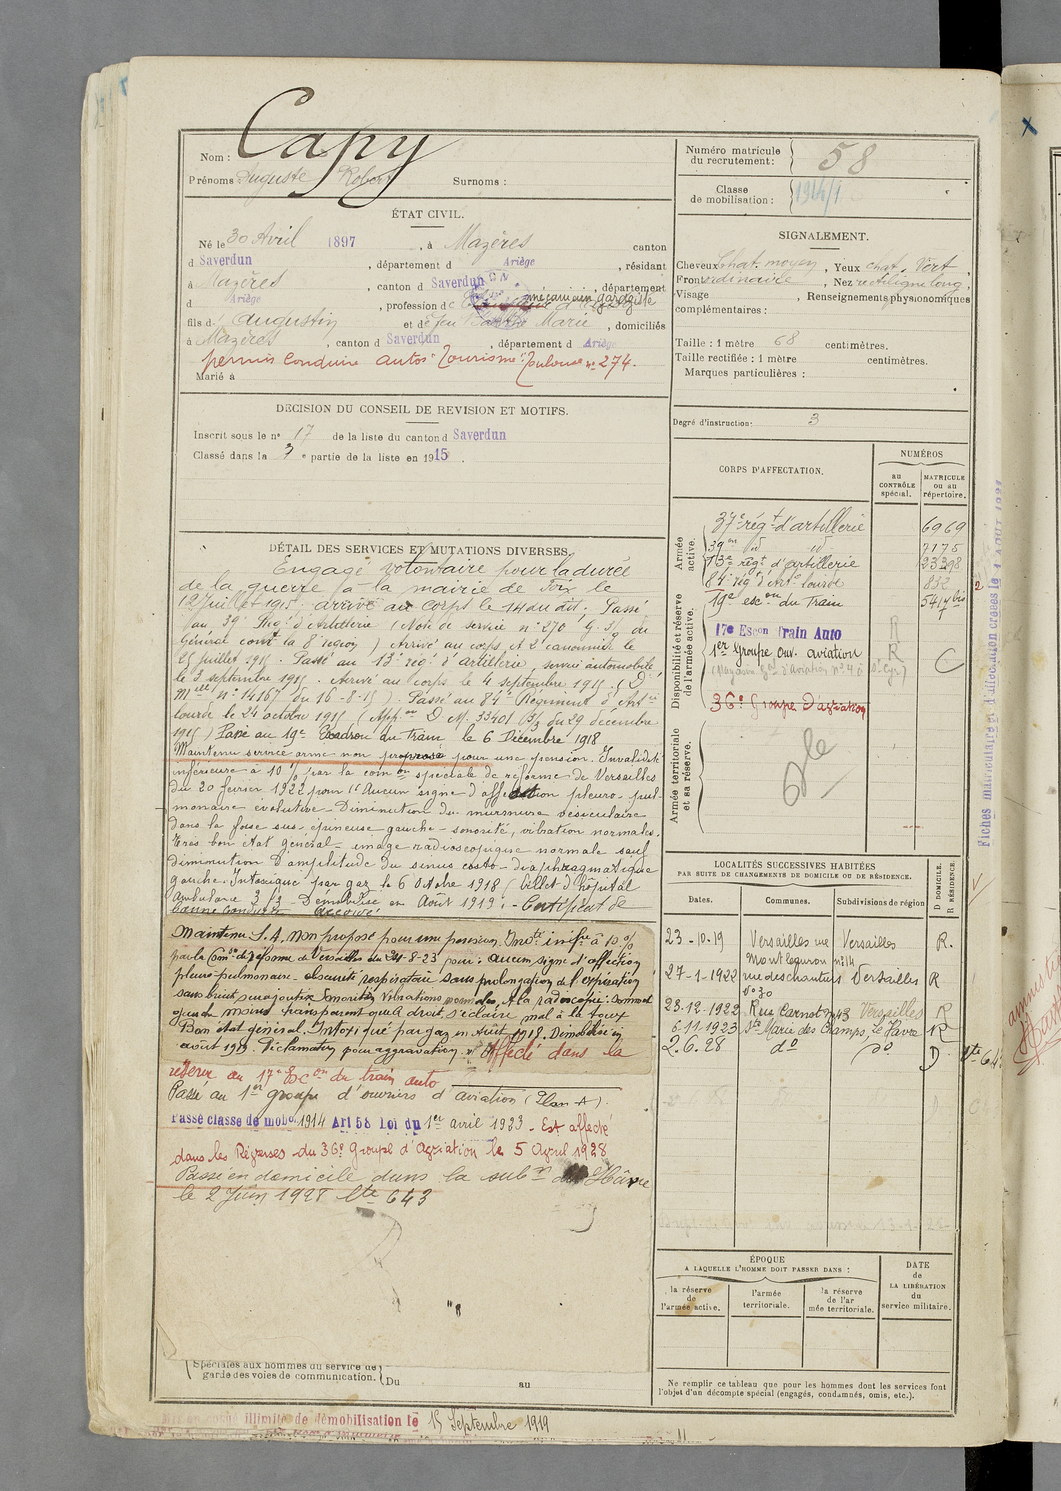 Nom : Capy
Prénoms : Auguste Robert Surnoms :
Numéro matricule du recrutement : 58
Classe de mobilisation : 1914/1
ÉTAT CIVIL.
Né le 30 Avril 1897, à Mazères canton
d Saverdun, département d Ariège, résidant
à Mazères, canton d Saverdun, département
d Ariège, profession de mécanicien garagiste
fils d' Augustin et de feu Marie, domiciliés
à Mazères, canton d Saverdun, département d Ariège
permis conduire autos "Tourisme" Toulouse n° 274.
Marié à
SIGNALEMENT.
Cheveux chat. moyen, Yeux chat. Vert,
Front ordinaire, Nez rectiligne long,
Visage , Renseignements physionomiques
complémentaires :
Taille : 1 mètre 68 centimètres.
Taille rectifiée : 1 mètre centimètres.
Marques particulières :
Degré d'instruction : 3
DÉCISION DU CONSEIL DE REVISION ET MOTIFS.
Inscrit sous le n° 17 de la liste du canton d Saverdun
Classé dans la 3 e partie de la liste en 1915.
DÉTAIL DES SERVICES ET MUTATIONS DIVERSES.
Engagé volontaire pour la durée
de la guerre à la mairie de Foix le
12 Juillet 1915, arrivé au corps le 14 du dit. Passé
au 39e Régt d'Artillerie (Note de service n° 270 G. S/g du
Général comt la 8e région) Arrivé au corps et 2e canonnier le
25 juillet 1915. Passé au 13e rég. d'artillerie, service automobile
le 3 septembre 1915. Arrivé au corps le 4 septembre 1915. (Don
Mlle n° 14167 du 16-8-15) Passé au 84e Régiment d'Artie
lourde le 24 octobre 1915 (App.on D M. 33401 3/3 du 29 décembre
1915) Passé au 19e Escadron du Train le 6 Décembre 1918
Maintenu service armé non proposé pour une pension. Invalidité
inférieure à 10 % par la comon spéciale de réforme de Versailles
du 20 fevrier 1922 pour "Aucun signe d'affection pleuro-pul-
monaire évolutive - Diminution du murmure vésiculaire
dans la fosse sus-épineuse gauche - sonorité, vibration normales.
Très bon état général - image radioscopique normale sauf
diminution d'amplitude du sinus costo-diaphragmatique
gauche. Intoxiqué par gaz le 6 Octobre 1918 (billet d'hôpital
Ambulance 3/3 - Démobilisé en Août 1919. - Certificat de
bonne conduite accordé.
Maintenu S.A. Non proposé pour une pension. Inv.té infre à 10 %
par la Comon de réforme de Versailles du 24-8-23 pour : aucun signe d'affection
pleuro-pulmonaire - obscurité respiratoire sans prolongation de l'expiration
sans bruit surajoutés Sonorités Vibrations normales. A la radioscopie : Sommet
gauche moins transparent que le droit, s'éclaire mal à la toux
Bon état général. Intoxiqué par gaz en Août 1918. Démobilisé en
août 1919. Réclamation pour aggravation. Affecté dans la
réserve au 17e Escon du train auto
Passé au 1er groupe d'ouvriers d'aviation (Plan A).
Passé classe de mobon 1914 Art 58 Loi du 1er avril 1923 - Est affecté
dans les Réserves du 36e Groupe d'Aviation le 5 April 1928
Passé en domicile dans la subon du Hâvre
le 2 Juin 1928 lte 643
CORPS D'AFFECTATION.
NUMÉROS
au CONTRÔLE spécial.
MATRICULE ou au répertoire.
Armée active.
37e régt d'artillerie 6969
39e id id 7175
13e régt d'artillerie 23398
84e régt d'Artie lourde 832
19e escon du Train 5417 bis
Disponibilité et réserve de l'armée active.
17e Escon Train Auto R
1er Groupe ouv. aviation R C
(Magasin Gal d'Aviation n° 4 à St Cyr)
36e Groupe d'aviation
Armée territoriale et sa réserve.
LOCALITÉS SUCCESSIVES HABITÉES
PAR SUITE DE CHANGEMENTS DE DOMICILE OU DE RÉSIDENCE.
Dates. Communes. Subdivisions de région D DOMICILE. R RÉSIDENCE.
23-10-19 Versailles rue Versailles R.
n° 14
27-1-1922 rue des chantiers Versailles R
n° 30
23.12.1922 Rue Carnot n° 43 Versailles R
6.11.1923 Ste Marie des Champs Le Havre R
2.6.28 do do D lte 643
ÉPOQUE
A LAQUELLE L'HOMME DOIT PASSER DANS :
la réserve de l'armée active.
l'armée territoriale.
la réserve de l'armée territoriale.
DATE de LA LIBÉRATION du service militaire.
Ne remplir ce tableau que pour les hommes dont les services font
l'objet d'un décompte spécial (engagés, condamnés, omis, etc.).
Spéciales aux hommes du service de
garde des voies de communication. Du au
illimité de démobilisation le 15 Septembre 1919